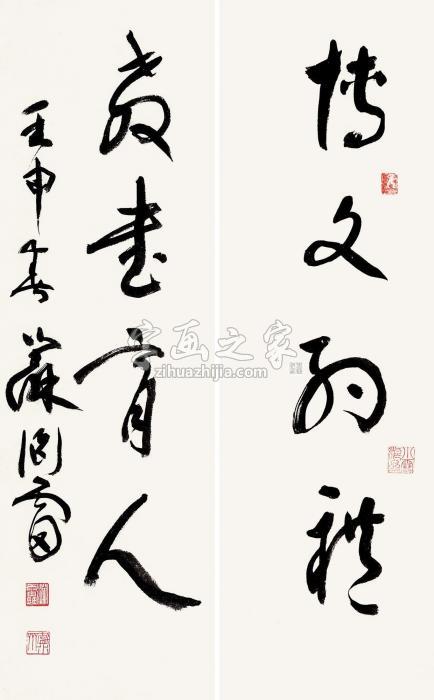 博文約禮
教書育人
壬申春 蘇淵雷
字画之家
zihuazhijia.com